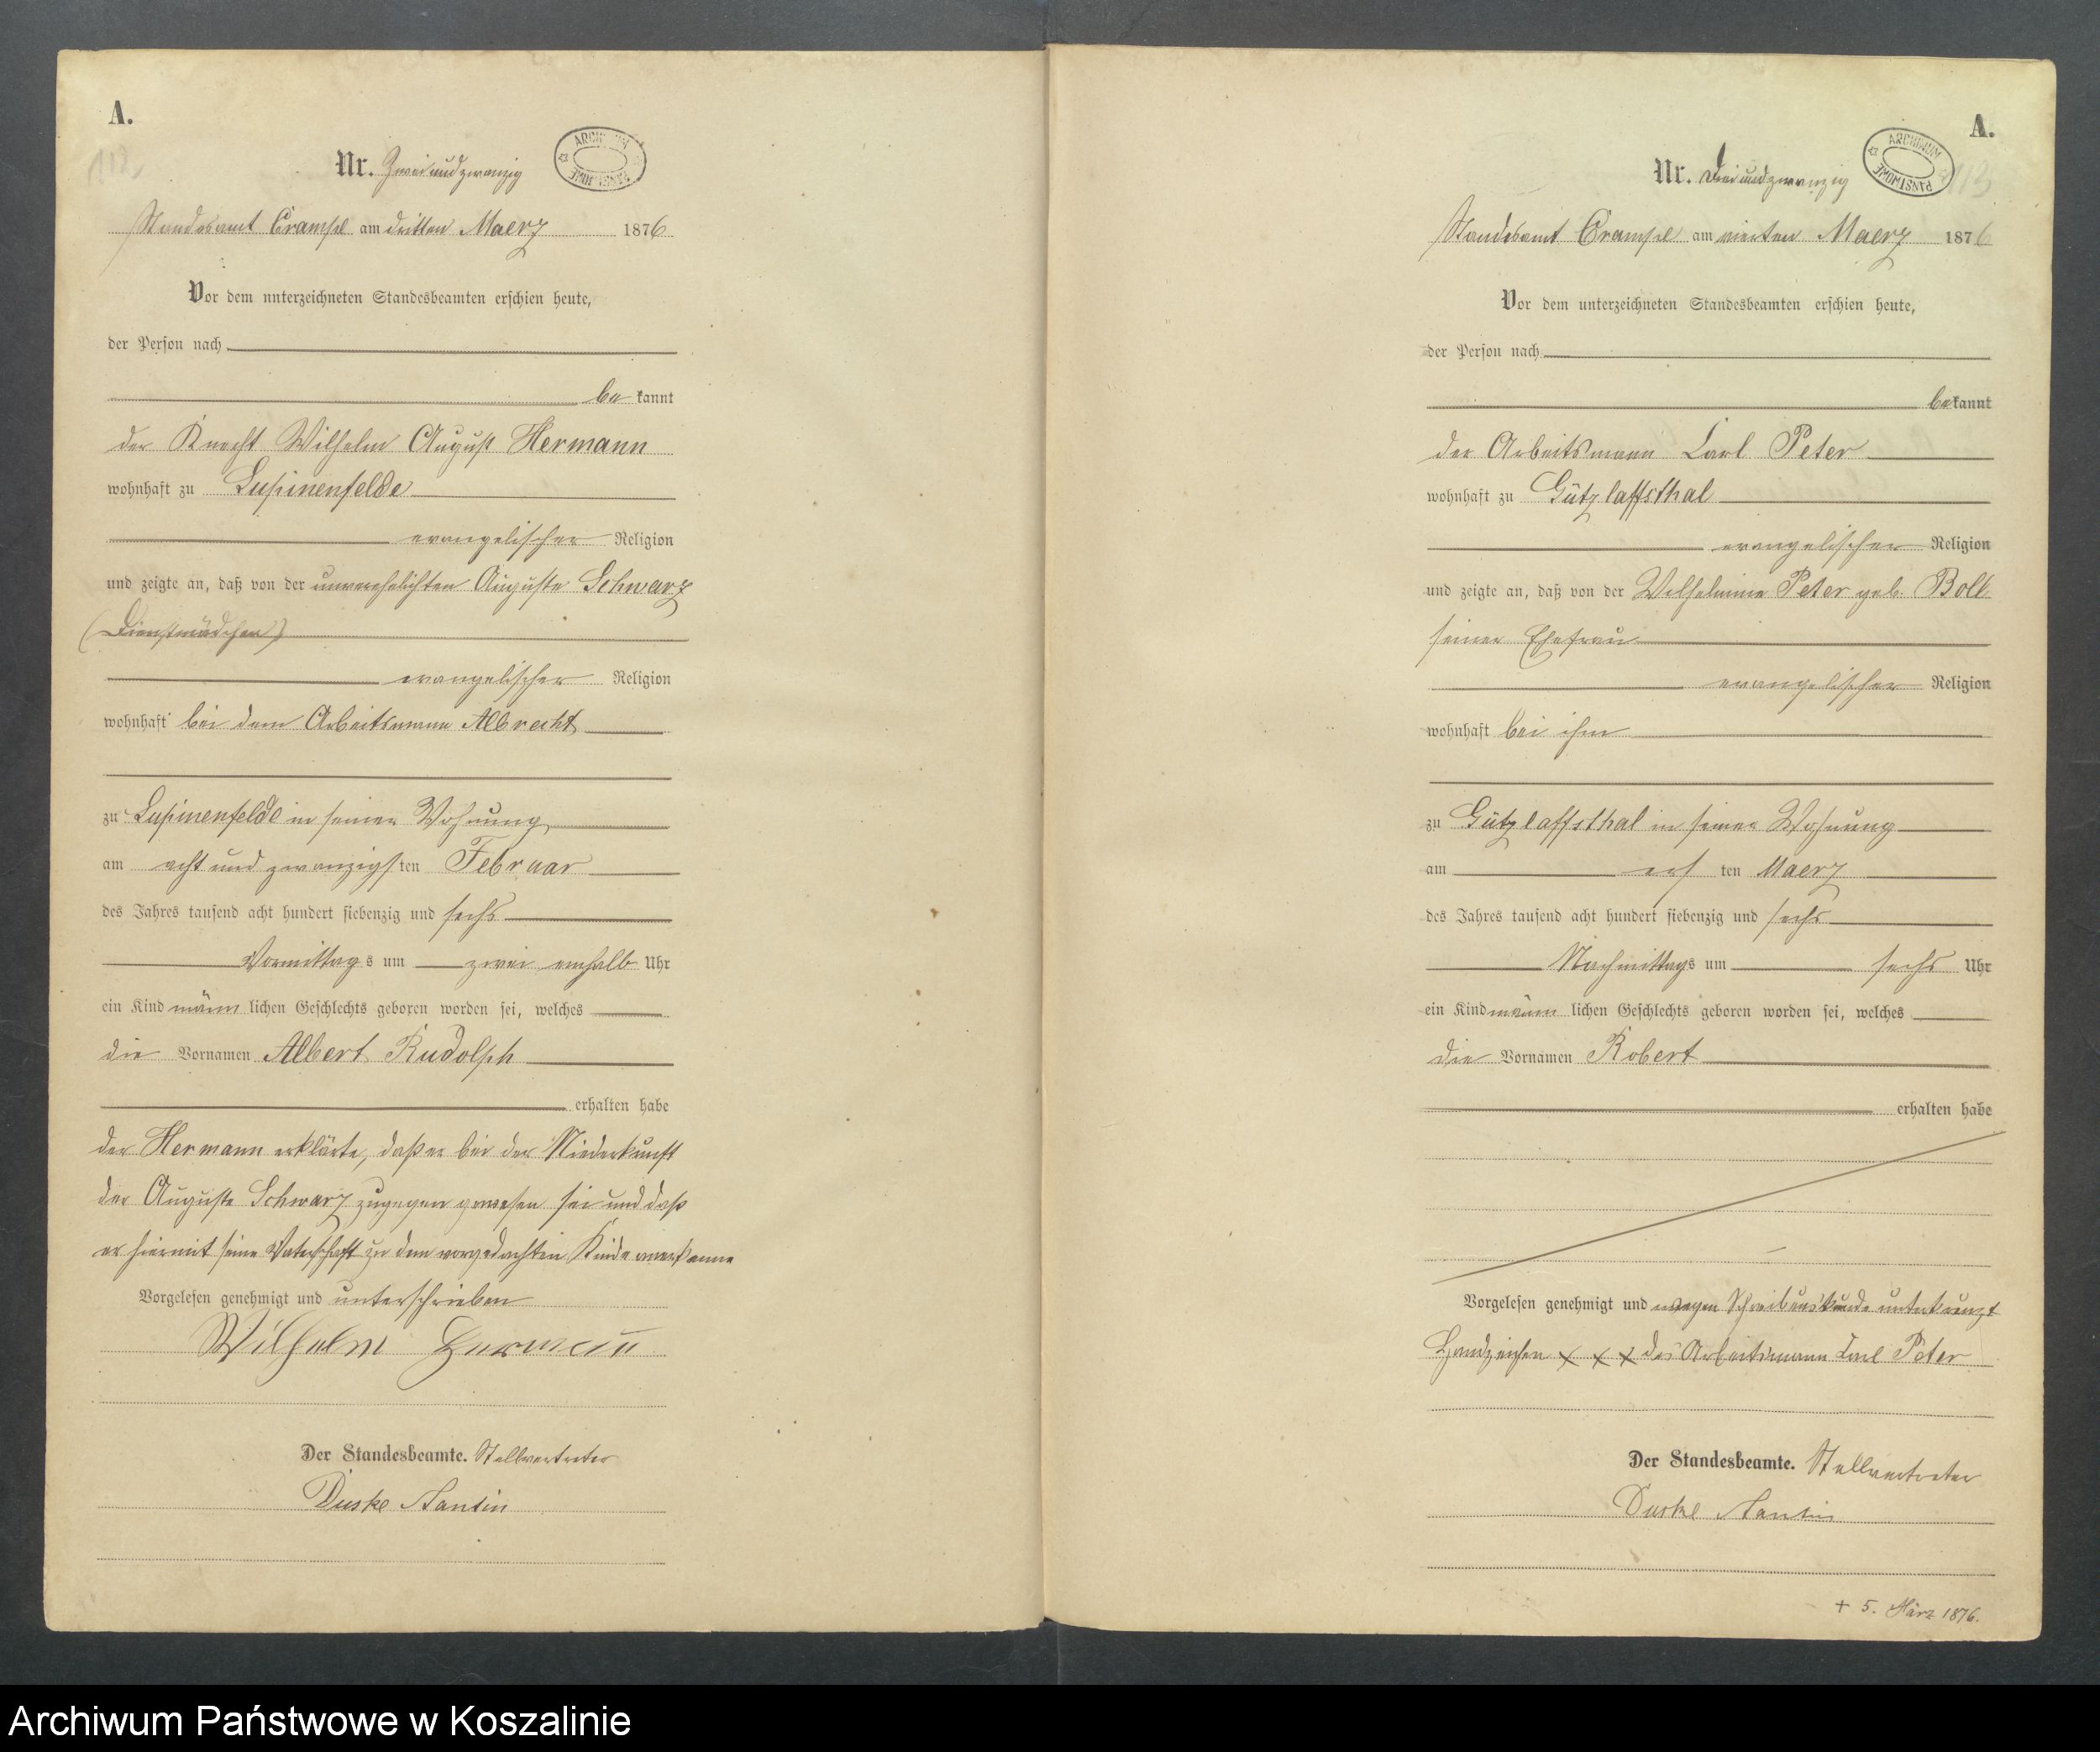 A.
112
Nr. Zweiundzwanzig
ARCHIWUM PAŃSTWOWE
Standesamt Crampe am dritten Maerz 1876
Vor dem unterzeichneten Standesbeamten erschien heute,
der Person nach
be kannt
der Knecht Wilhelm August Hermann
wohnhaft zu Lupinenfelde
evangelischer Religion
und zeigte an, daß von der unverehelichten Auguste Schwarz
(Dienstmädchen)
evangelischer Religion
wohnhaft bei dem Arbeitsmann Albrecht
zu Lupinenfelde in seiner Wohnung
am acht und zwanzigsten Februar
des Jahres tausend acht hundert siebenzig und sechs
Vormittags um zwei einhalb Uhr
ein Kind männlichen Geschlechts geboren worden sei, welches
die Vornamen Albert Rudolph
erhalten habe
der Hermann erklärte, daß er bei der Niederkunft
der Auguste Schwarz zugegen gewesen sei und daß
er hiermit seine Vaterschaft zu dem vorgedachten Kinde anerkenne
Vorgelesen genehmigt und unterschrieben
Wilhelm Hermann
Der Standesbeamte. Stellvertreter
Duske
A.
113
Nr. Dreiundzwanzig
ARCHIWUM PAŃSTWOWE
Standesamt Crampe am vierten Maerz 1876
Vor dem unterzeichneten Standesbeamten erschien heute,
der Person nach
bekannt
der Arbeitsmann Carl Peter
wohnhaft zu Gützlaffsthal
evangelischer Religion
und zeigte an, daß von der Wilhelmine Peter geb. Boll
seiner Ehefrau
evangelischer Religion
wohnhaft bei ihm
zu Gützlaffsthal in seiner Wohnung
am ersten Maerz
des Jahres tausend acht hundert siebenzig und sechs
Nachmittags um sechs Uhr
ein Kind männlichen Geschlechts geboren worden sei, welches
die Vornamen Robert
erhalten habe
Vorgelesen genehmigt und wegen Schreibunkunde unterkreuzt
Handzeichen x x x des Arbeitsmann Carl Peter
Der Standesbeamte. Stellvertreter
Duske
+ 5. März 1876.
Archiwum Państwowe w Koszalinie